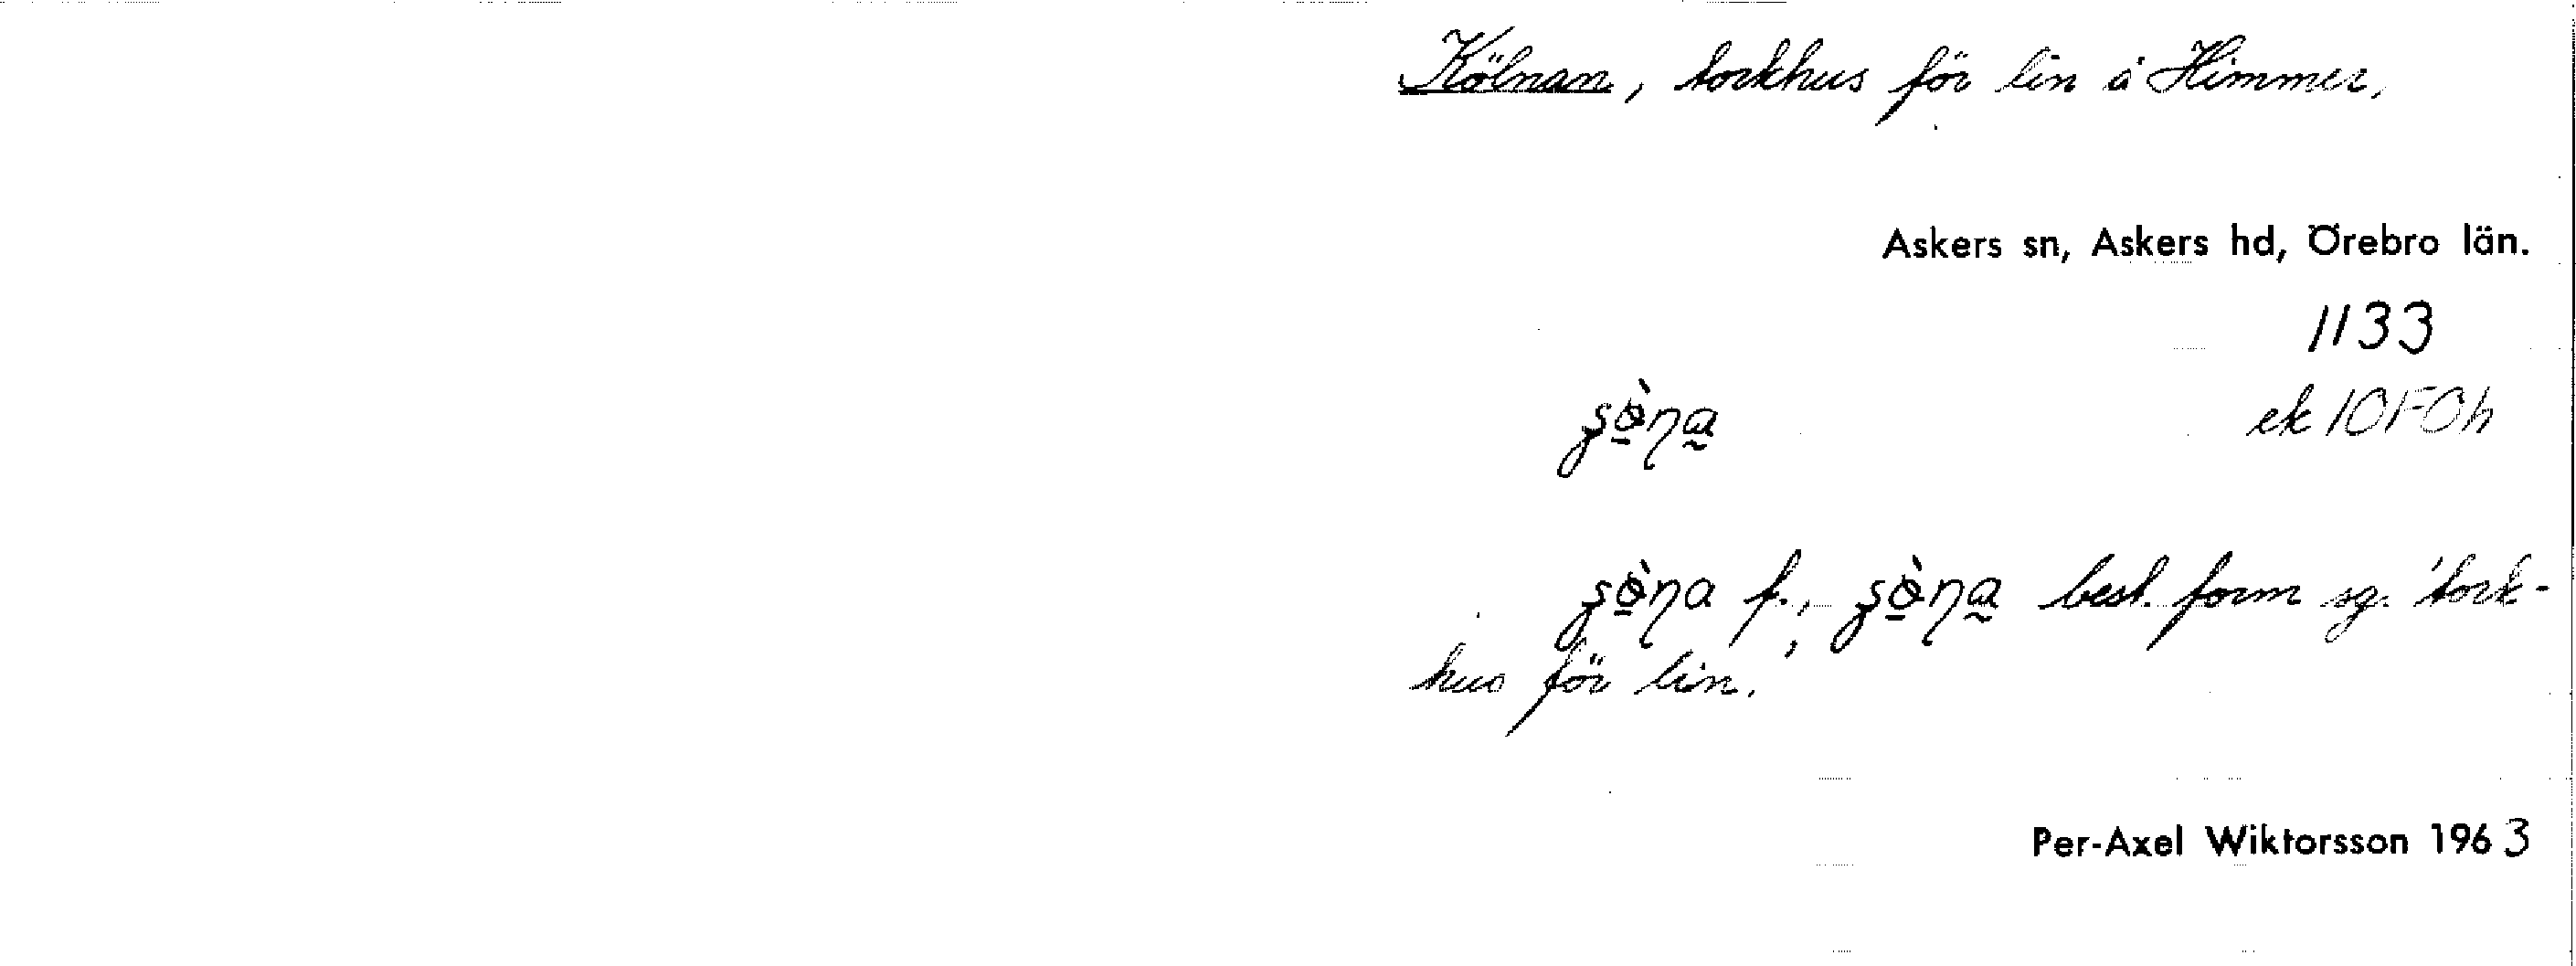 Kölnan, torkhus för lin å Himmer,
Askers sn, Askers hd, Örebro län.
1133
ek 10F0h
best. form sg. 'tork-
hus för lin.'
Per-Axel Wiktorsson 1963